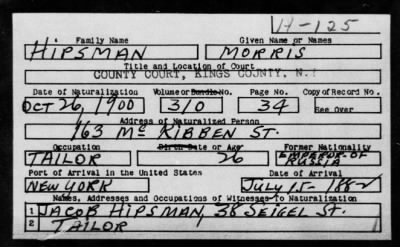 VA-125
Family Name Given Name or Names
HIPSMAN MORRIS
Title and Location of Court
COUNTY COURT, KINGS COUNTY, N.Y.
Date of Naturalization Volume or Bundle No. Page No. Copy of Record No.
OCT 26, 1900 310 34 See Over
Address of Naturalized Person
163 Mc KIBBEN ST.
Occupation Birth Date or Age Former Nationality
TAILOR 26 EMPEROR OF RUSSIA
Port of Arrival in the United States Date of Arrival
NEW YORK JULY 15- 1882
Names, Addresses and Occupations of Witnesses To Naturalization
1 JACOB HIPSMAN, 38 SEIGEL St.
2 TAILOR